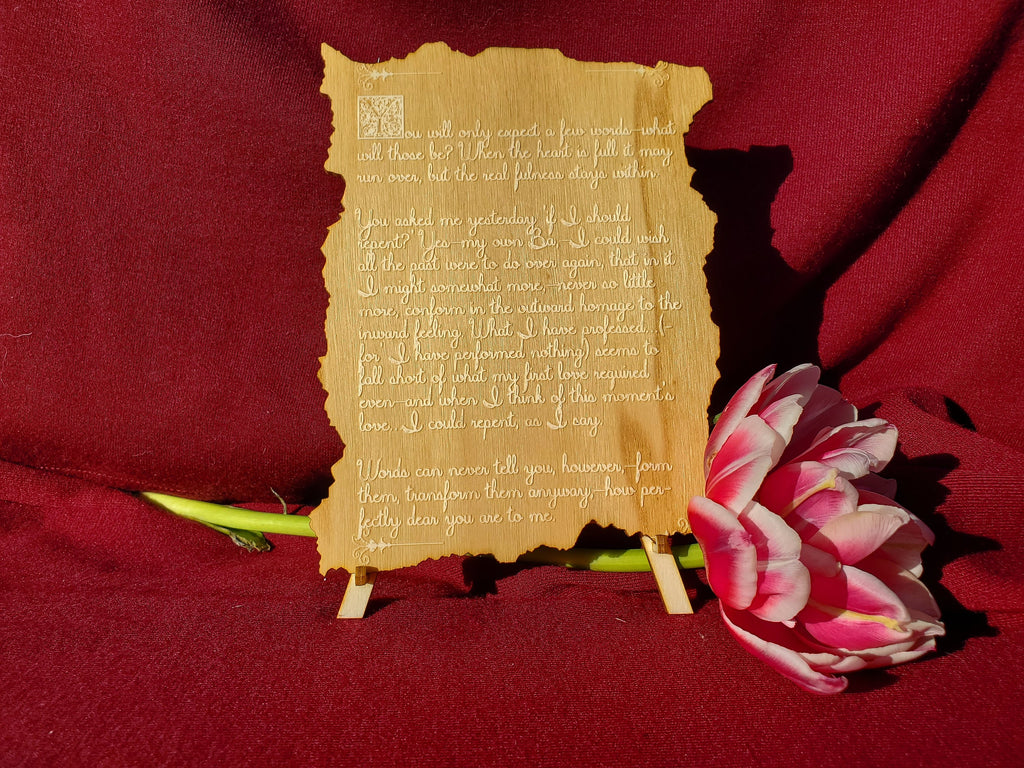 You will only expect a few words—what
will those be? When the heart is full it may
run over, but the real fulness stays within.
You asked me yesterday 'if I should
repent?' Yes—my own Ba,—I could wish
all the past were to do over again, that in it
I might somewhat more,—never so little
more, conform in the outward homage to the
inward feeling. What I have professed...(—
for I have performed nothing) seems to
fall short of what my first love required
even—and when I think of this moment's
love...I could repent, as I say.
Words can never tell you, however,—form
them, transform them anyway,—how per-
fectly dear you are to me.